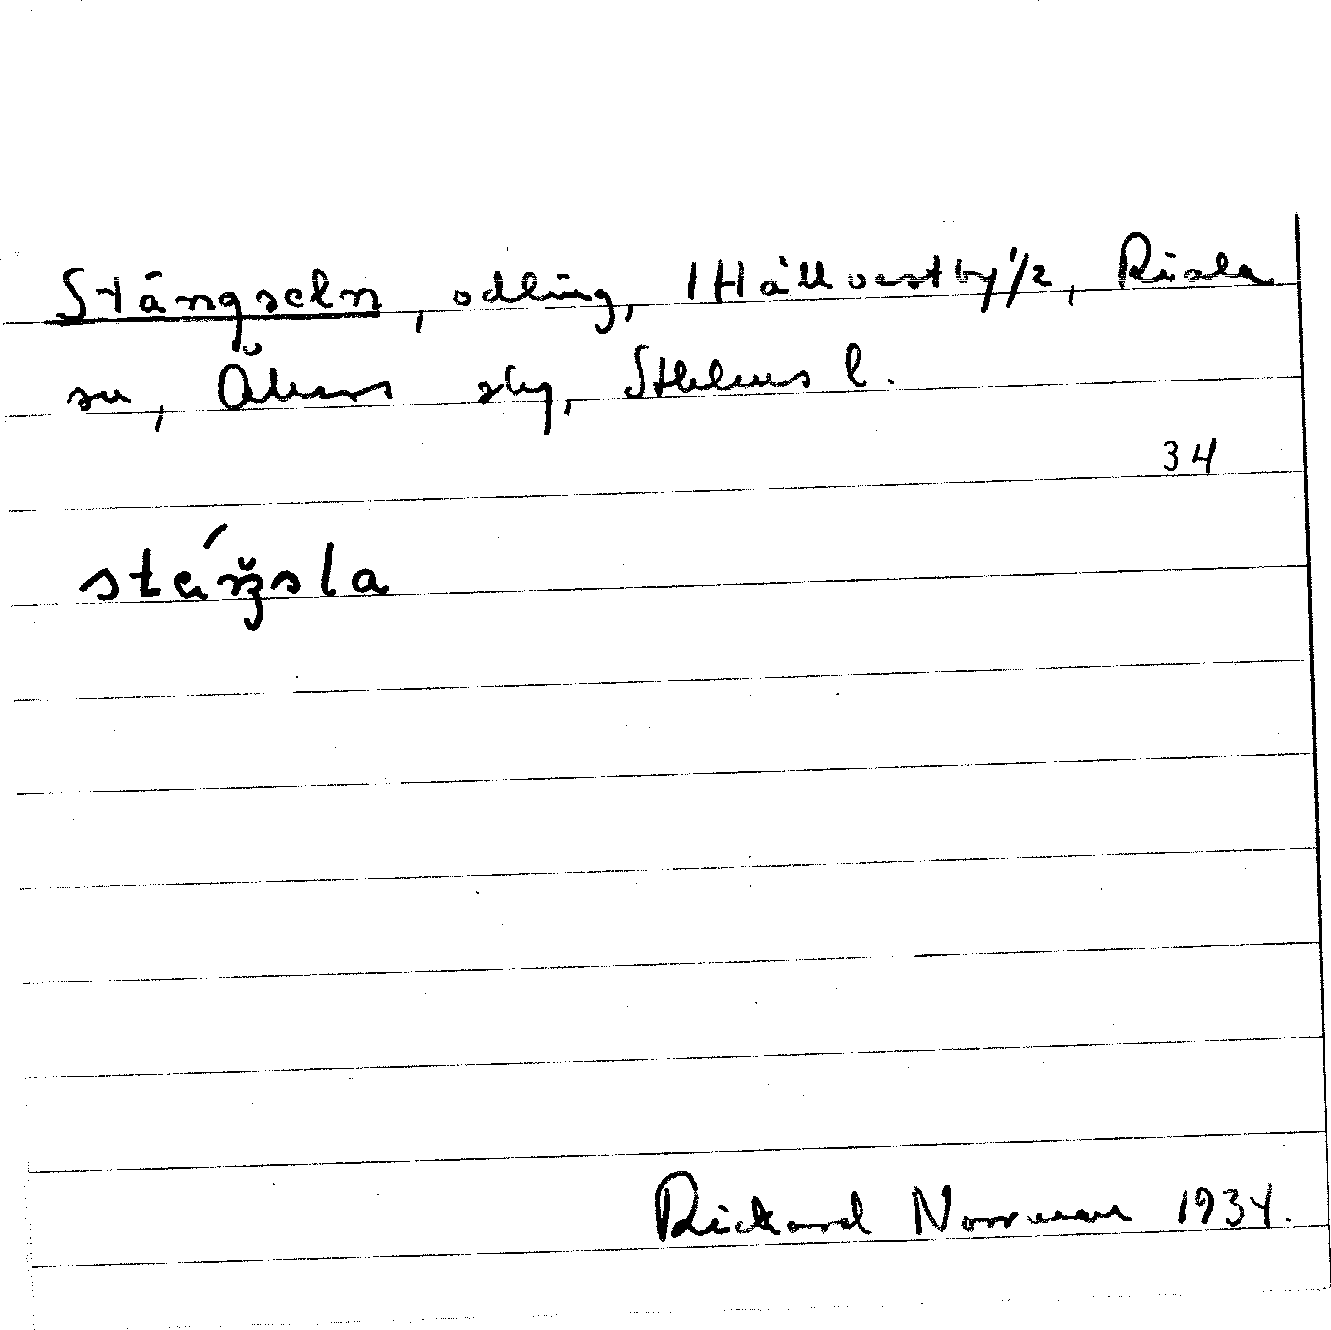 Stängseln, odling, 1 Hållvastby 1/2, Riala
sn, Åkers skg, Sthlms l.
34
stáŋsla
Rickard Norrman 1934.